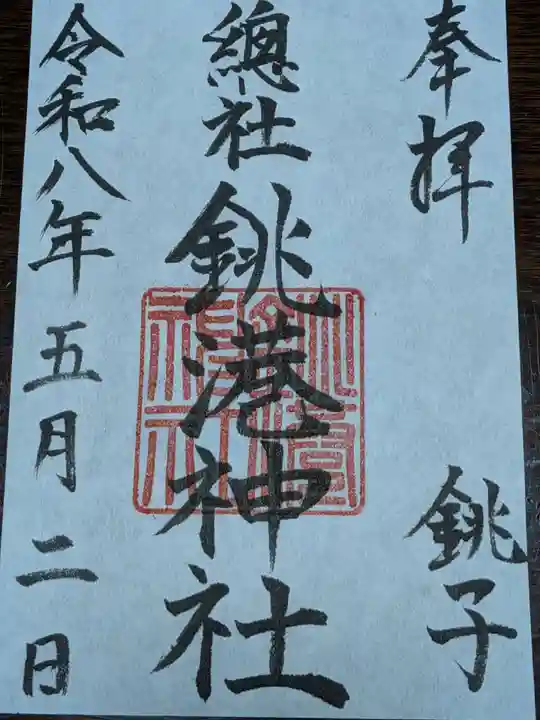 奉拝　銚子
總社　銚港神社
令和八年五月二日
銚港神社